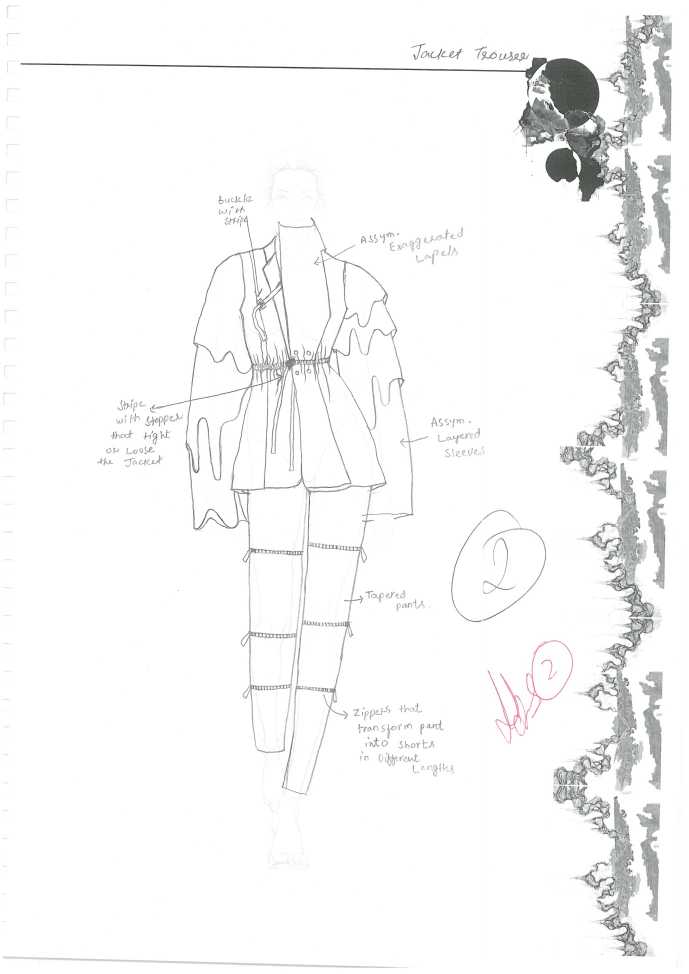 Jacket Trouser
buckle
with
stripe
Assym.
Exaggerated
Lapels
Stripe
with stopper
that tight
or Loose
the Jacket
Assym.
Layered
Sleeves
2
Tapered
pants.
2
Zippers that
transform pant
into shorts
in Different
Lengths